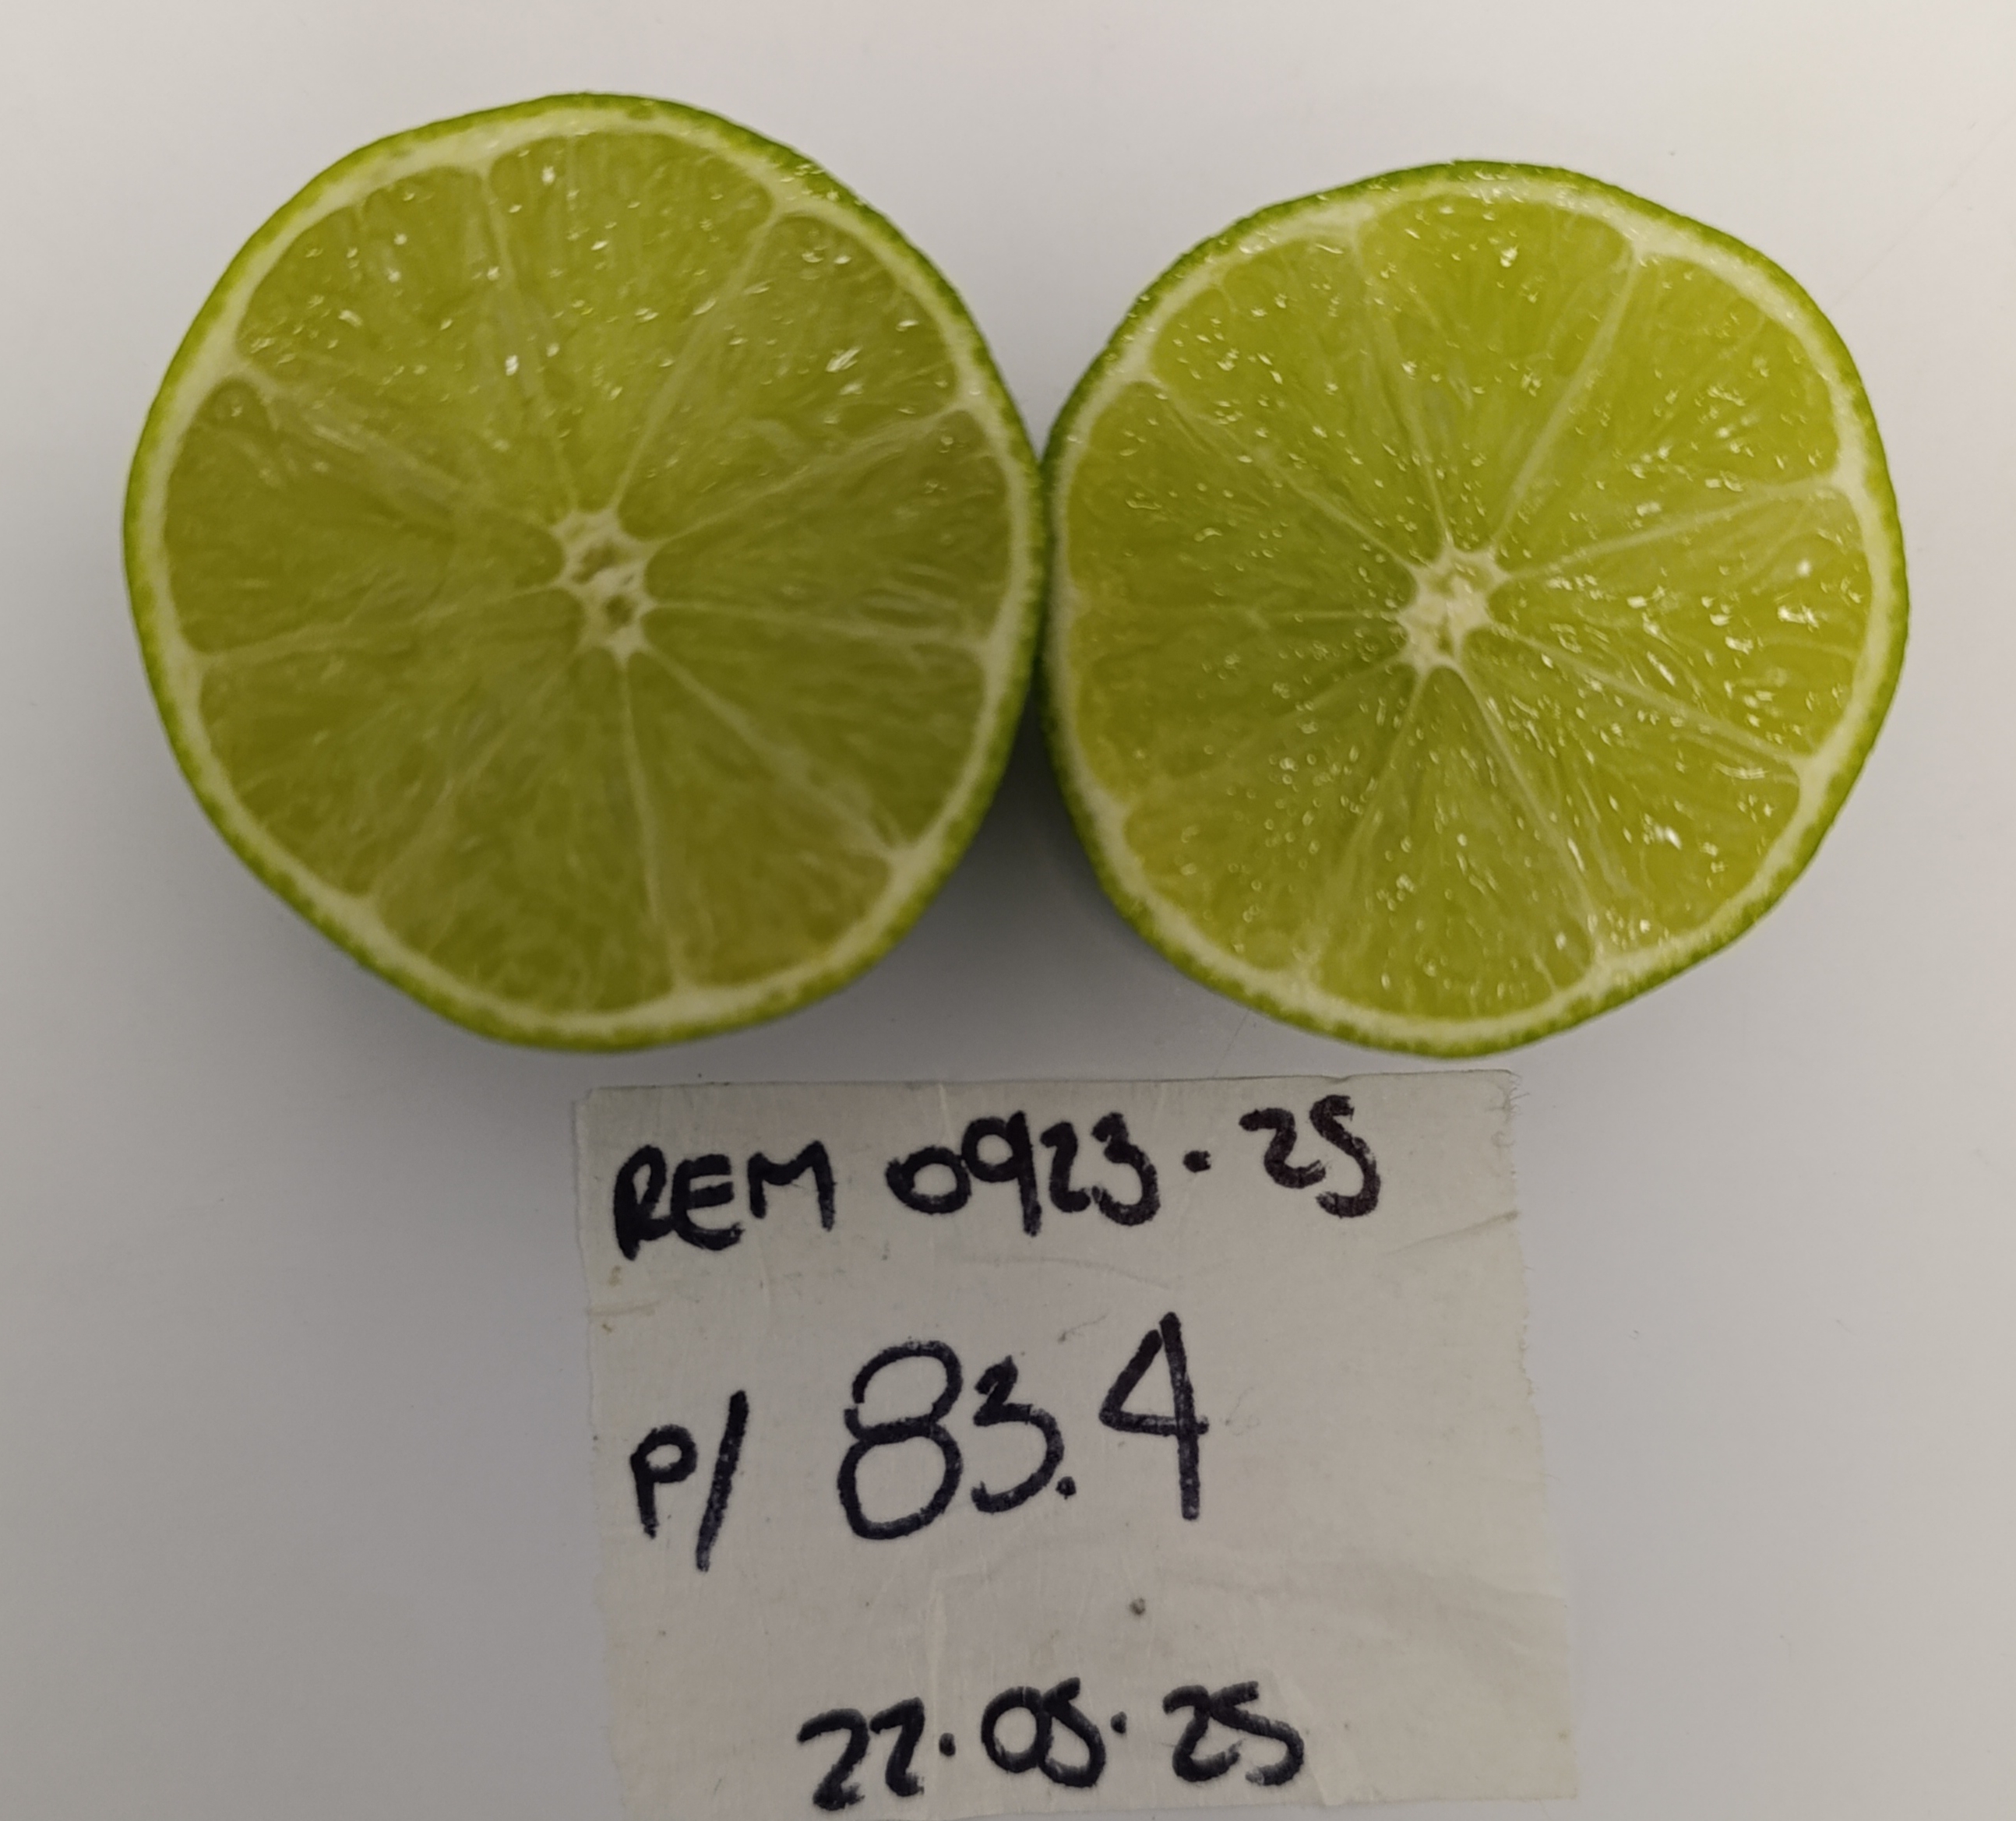 REM 0923.25
P/ 83.4
22.05.25